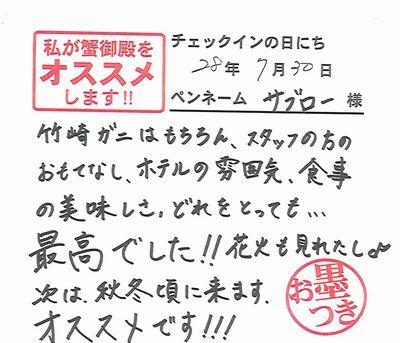 私が蟹御殿を
オススメ
します!!
チェックインの日にち
28年 7月 30日
ペンネーム サブロー 様
竹崎ガニはもちろん、スタッフの方の
おもてなし、ホテルの雰囲気、食事
の美味しさ。どれをとっても…
最高でした!! 花火も見れたし♪
次は、秋冬頃に来ます。
オススメです!!!
お墨つき